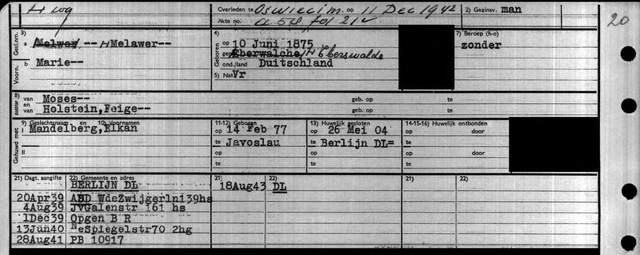 Overleden te Oswiecim. op 11 Dec 1942 2) Gezinsv. man
Akte no. a 5d fol 21v 20
3) 4) 7) Beroep (h-o)
Gesl.nm. a Melwer-- Melawer-- Geboren op 10 Juni 1875 zonder
b te Eberwalche/N Eberswalde
Voorn. Marie-- ond./land Duitschland
5) Nat Vr
8) van Moses-- geb. op te
en van Holstein, Feige-- geb. op te
9) Geslachtsnaam en 10) voornamen 11-12) Geboren 13) Huwelijk gesloten 14-15-16) Huwelijk ontbonden
Gehuwd met I Mandelberg, Elkan op 14 Feb 77 op 26 Mei 04 op door
te Javoslau te Berlijn DL=
II op op op door
te te
21) Dagt. aangifte 22) Gemeente en adres 21) 22) 21) 22)
BERLIJN DL 18Aug43 DL
20Apr39 ABD WdeZwijgerln139hs
4Aug39 JvGalenstr 161 hs
1Dec39 Opgen B R
13Jun40 NeSpiegelstr70 2hg
28Aug41 PB 10917